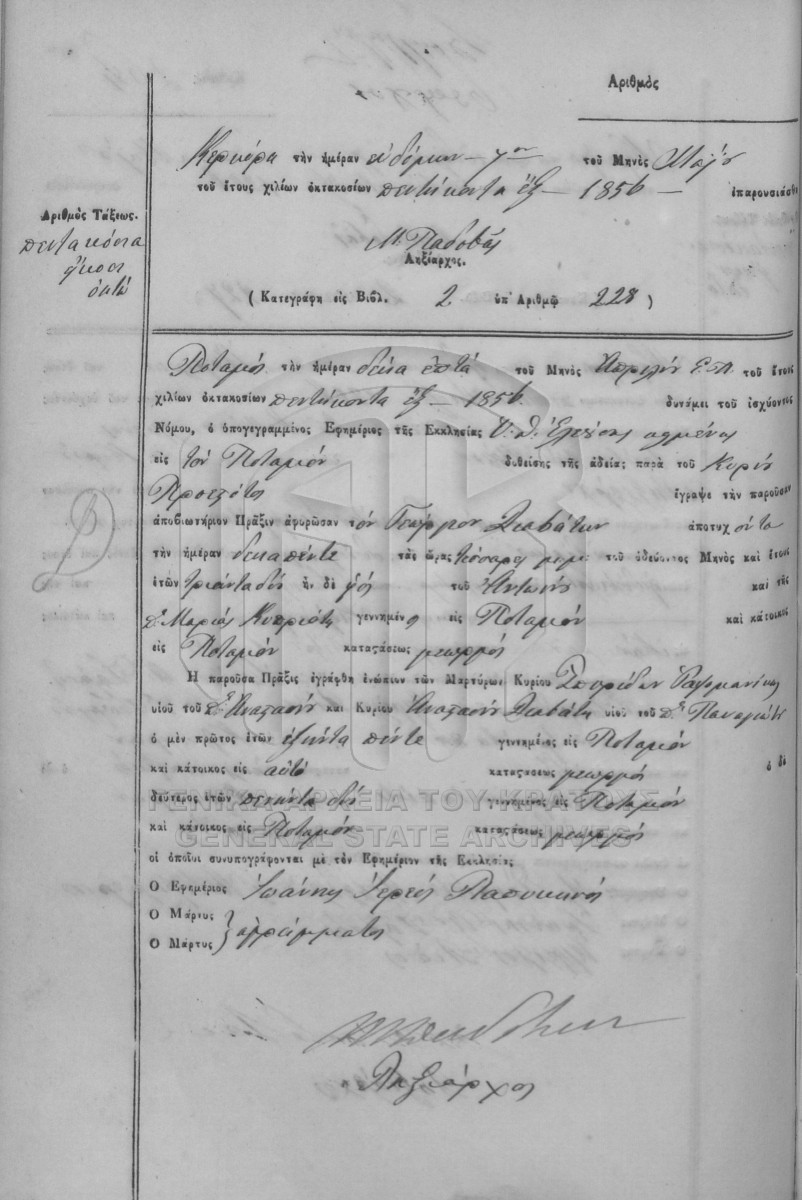 Ἀριθμὸς
Κερκύρα τὴν ἡμέραν εὐδόμην 7ην τοῦ Μηνὸς Μαΐου
τοῦ ἔτους χιλίων ὀκτακοσίων πεντήκοντα ἕξ — 1856 — ἐπαρουσιάσθη
Ἀριθμὸς Τάξεως.
πεντακόσια
ὀκτώ
Μ. Παδοβᾶς
Ληξίαρχος.
( Κατεγράφη εἰς Βιβλ. 2 ὑπ' Ἀριθμῷ 228 )
Ποταμός τὴν ἡμέραν δέκα ἑπτά τοῦ Μηνὸς Ἀπριλίου Ε.Π. τοῦ ἔτους
χιλίων ὀκτακοσίων πεντήκοντα ἕξ — 1856 δυνάμει τοῦ ἰσχύοντος
Νόμου, ὁ ὑπογεγραμμένος Ἐφημέριος τῆς Ἐκκλησίας Υ. Θ.
εἰς τόν Ποταμόν δοθείσης τῆς ἀδείας παρὰ τοῦ Κυρίου
Προεστότος ἔγραψε τὴν παροῦσαν
ἀποβιωτήριον Πρᾶξιν ἀφορῶσαν τόν Γεώργιον Διαβάτην ἀποτυχόντα
τὴν ἡμέραν δεκαπέντε τὰς ὥρας τέσσαρας μ.μ. τοῦ ὁδεύοντος Μηνὸς καὶ ἔτους
ἐτῶν τριάντα δύο ἦν δὲ υἱός τοῦ Ἀντωνίου καὶ τῆς
Δ. Μαρίας γεννημένος εἰς Ποταμόν καὶ κάτοικος
εἰς Ποταμόν καταςάσεως γεωργός
Ἡ παροῦσα Πρᾶξις ἐγράφθη ἐνώπιον τῶν Μαρτύρων Κυρίου Σπυρίδων
υἱοῦ τοῦ Δ. Ἀναστασίου καὶ Κυρίου Ἀναστασίου Διαβάτη υἱοῦ τοῦ Δ. Παναγιώτη
ὁ μὲν πρῶτος ἐτῶν ἑξήντα πέντε γεννημένος εἰς Ποταμόν
καὶ κάτοικος εἰς αὐτό καταςάσεως γεωργός ὁ δὲ
δεύτερος ἐτῶν πενήντα δύο γεννημένος εἰς Ποταμόν
καὶ κάτοικος εἰς Ποταμόν καταςάσεως γεωργός
οἱ ὁποῖοι συνυπογράφονται μὲ τὸν Ἐφημέριον τῆς Ἐκκλησίας
Ὁ Ἐφημέριος Ἰωάννης Ἱερεύς
Ὁ Μάρτυς
Ὁ Μάρτυς } ἀγράμματος
Ληξίαρχος
ΓΕΝΙΚΑ ΑΡΧΕΙΑ ΤΟΥ ΚΡΑΤΟΥΣ
GENERAL STATE ARCHIVES